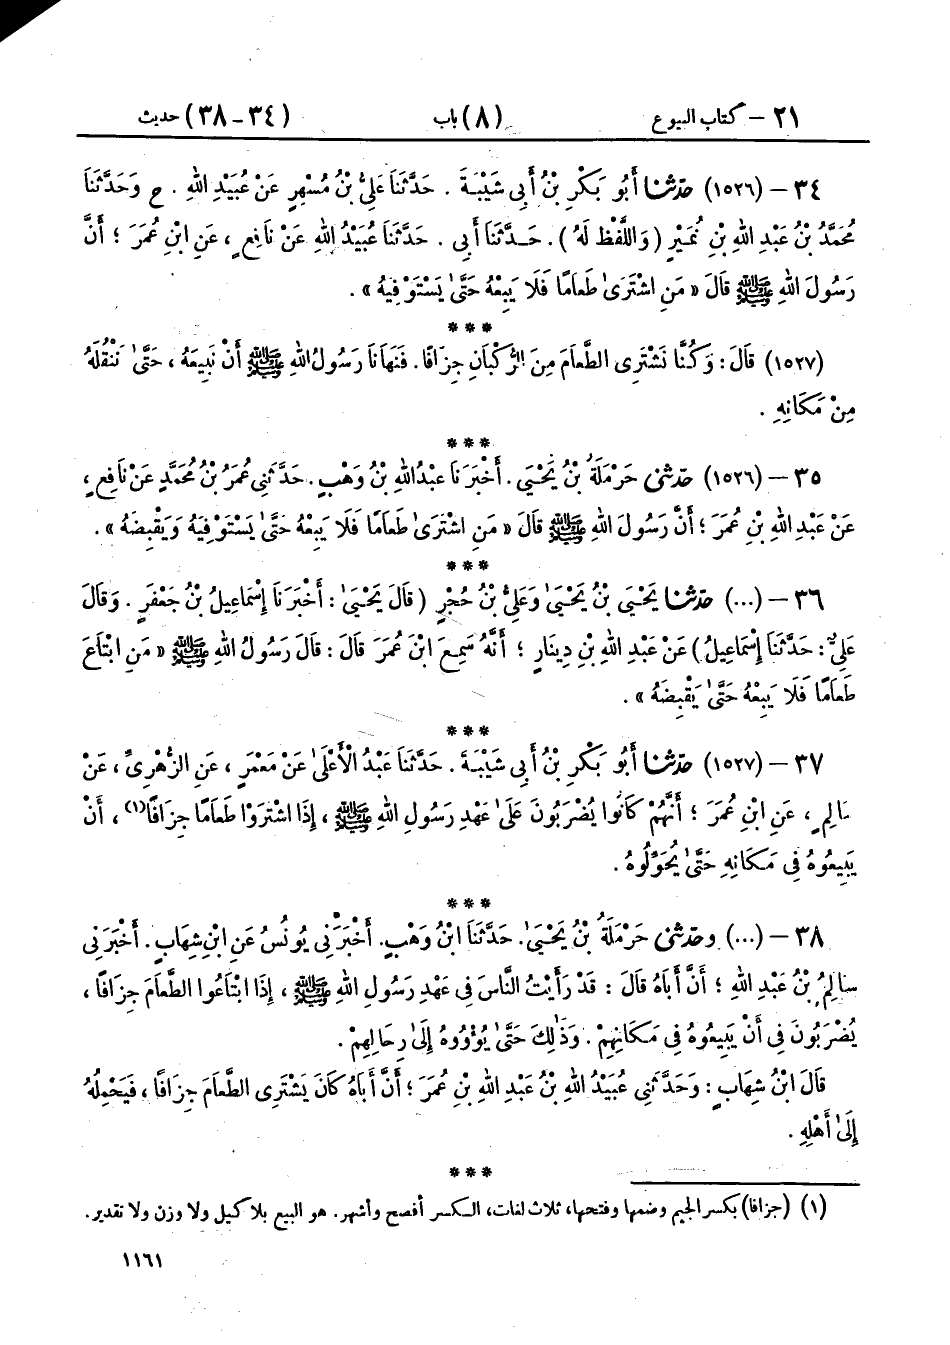 ٢١ – كتاب البيوع (٨) باب (٣٤-٣٨) حديث
٣٤ – (١٥٢٦) حَدَّثَنَا أَبُو بَكْرِ بْنُ أَبِي شَيْبَةَ . حَدَّثَنَا عَلِيُّ بْنُ مُسْهِرٍ عَنْ عُبَيْدِ اللهِ . ح وَحَدَّثَنَا
مُحَمَّدُ بْنُ عَبْدِ اللهِ بْنِ نُمَيْرٍ ( وَاللَّفْظُ لَهُ ) . حَدَّثَنَا أَبِي . حَدَّثَنَا عُبَيْدُ اللهِ عَنْ نَافِعٍ ، عَنِ ابْنِ عُمَرَ ؛ أَنَّ
رَسُولَ اللهِ ﷺ قَالَ « مَنِ اشْتَرَىٰ طَعَامًا فَلَا يَبِعْهُ حَتَّىٰ يَسْتَوْفِيَهُ » .
***
(١٥٢٧) قَالَ : وَكُنَّا نَشْتَرِي الطَّعَامَ مِنَ الرُّكْبَانِ جِزَافًا . فَنَهَانَا رَسُولُ اللهِ ﷺ أَنْ نَبِيعَهُ ، حَتَّىٰ نَنْقُلَهُ
مِنْ مَكَانِهِ .
***
٣٥ – (١٥٢٦) حَدَّثَنِي حَرْمَلَةُ بْنُ يَحْيَىٰ . أَخْبَرَنَا عَبْدُ اللهِ بْنُ وَهْبٍ . حَدَّثَنِي عُمَرُ بْنُ مُحَمَّدٍ عَنْ نَافِعٍ ،
عَنْ عَبْدِ اللهِ بْنِ عُمَرَ ؛ أَنَّ رَسُولَ اللهِ ﷺ قَالَ « مَنِ اشْتَرَىٰ طَعَامًا فَلَا يَبِعْهُ حَتَّىٰ يَسْتَوْفِيَهُ وَيَقْبِضَهُ » .
***
٣٦ – (...) حَدَّثَنَا يَحْيَىٰ بْنُ يَحْيَىٰ وَعَلِيُّ بْنُ حُجْرٍ ( قَالَ يَحْيَىٰ : أَخْبَرَنَا إِسْمَاعِيلُ بْنُ جَعْفَرٍ . وَقَالَ
عَلِيٌّ : حَدَّثَنَا إِسْمَاعِيلُ ) عَنْ عَبْدِ اللهِ بْنِ دِينَارٍ ؛ أَنَّهُ سَمِعَ ابْنَ عُمَرَ قَالَ : قَالَ رَسُولُ اللهِ ﷺ « مَنِ ابْتَاعَ
طَعَامًا فَلَا يَبِعْهُ حَتَّىٰ يَقْبِضَهُ » .
***
٣٧ – (١٥٢٧) حَدَّثَنَا أَبُو بَكْرِ بْنُ أَبِي شَيْبَةَ . حَدَّثَنَا عَبْدُ الْأَعْلَىٰ عَنْ مَعْمَرٍ ، عَنِ الزُّهْرِيِّ ، عَنْ
سَالِمٍ ، عَنِ ابْنِ عُمَرَ ؛ أَنَّهُمْ كَانُوا يُضْرَبُونَ عَلَىٰ عَهْدِ رَسُولِ اللهِ ﷺ ، إِذَا اشْتَرَوْا طَعَامًا جِزَافًا(١) ، أَنْ
يَبِيعُوهُ فِي مَكَانِهِ حَتَّىٰ يُحَوِّلُوهُ .
***
٣٨ – (...) وحَدَّثَنِي حَرْمَلَةُ بْنُ يَحْيَىٰ . حَدَّثَنَا ابْنُ وَهْبٍ . أَخْبَرَنِي يُونُسُ عَنِ ابْنِ شِهَابٍ . أَخْبَرَنِي
سَالِمُ بْنُ عَبْدِ اللهِ ؛ أَنَّ أَبَاهُ قَالَ : قَدْ رَأَيْتُ النَّاسَ فِي عَهْدِ رَسُولِ اللهِ ﷺ ، إِذَا ابْتَاعُوا الطَّعَامَ جِزَافًا ،
يُضْرَبُونَ فِي أَنْ يَبِيعُوهُ فِي مَكَانِهِمْ . وَذٰلِكَ حَتَّىٰ يُؤْوُوهُ إِلَىٰ رِحَالِهِمْ .
قَالَ ابْنُ شِهَابٍ : وَحَدَّثَنِي عُبَيْدُ اللهِ بْنُ عَبْدِ اللهِ بْنِ عُمَرَ ؛ أَنَّ أَبَاهُ كَانَ يَشْتَرِي الطَّعَامَ جِزَافًا ، فَيَحْمِلُهُ
إِلَىٰ أَهْلِهِ .
***
(١) (جزافا) بكسر الجيم وضمها وفتحها، ثلاث لغات، الكسر أفصح وأشهر. هو البيع بلا كيل ولا وزن ولا تقدير.
١١٦١